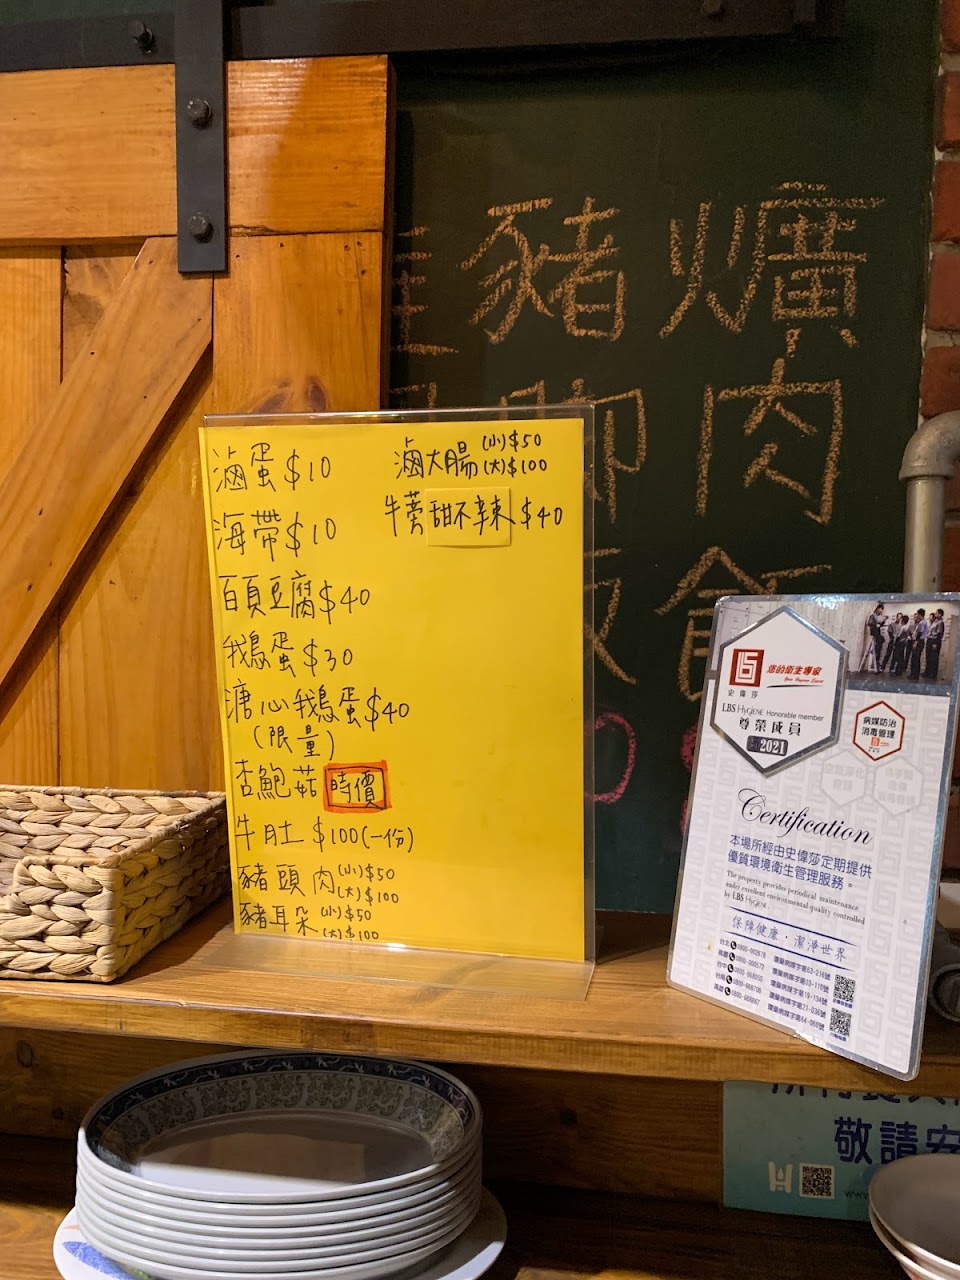 爌肉飯
豬腳飯
滷蛋$10
海帶$10
百頁豆腐$40
鵝蛋$30
溏心鵝蛋$40
(限量)
杏鮑菇 時價
牛肚 $100(一份)
豬頭肉(小)$50
(大)$100
豬耳朵(小)$50
(大)$100
滷大腸(小)$50
(大)$100
牛蒡甜不辣$40
您的衛生專家
Your Hygiene Expert
史偉莎
LBS HyGiENE Honorable member
尊榮成員
2021
病媒防治
消毒管理
Certification
本場所經由史偉莎定期提供
優質環境衛生管理服務。
The property provides periodical maintenance
under excellent environmental quality controlled
by LBS HyGiENE
保障健康・潔淨世界
敬請安